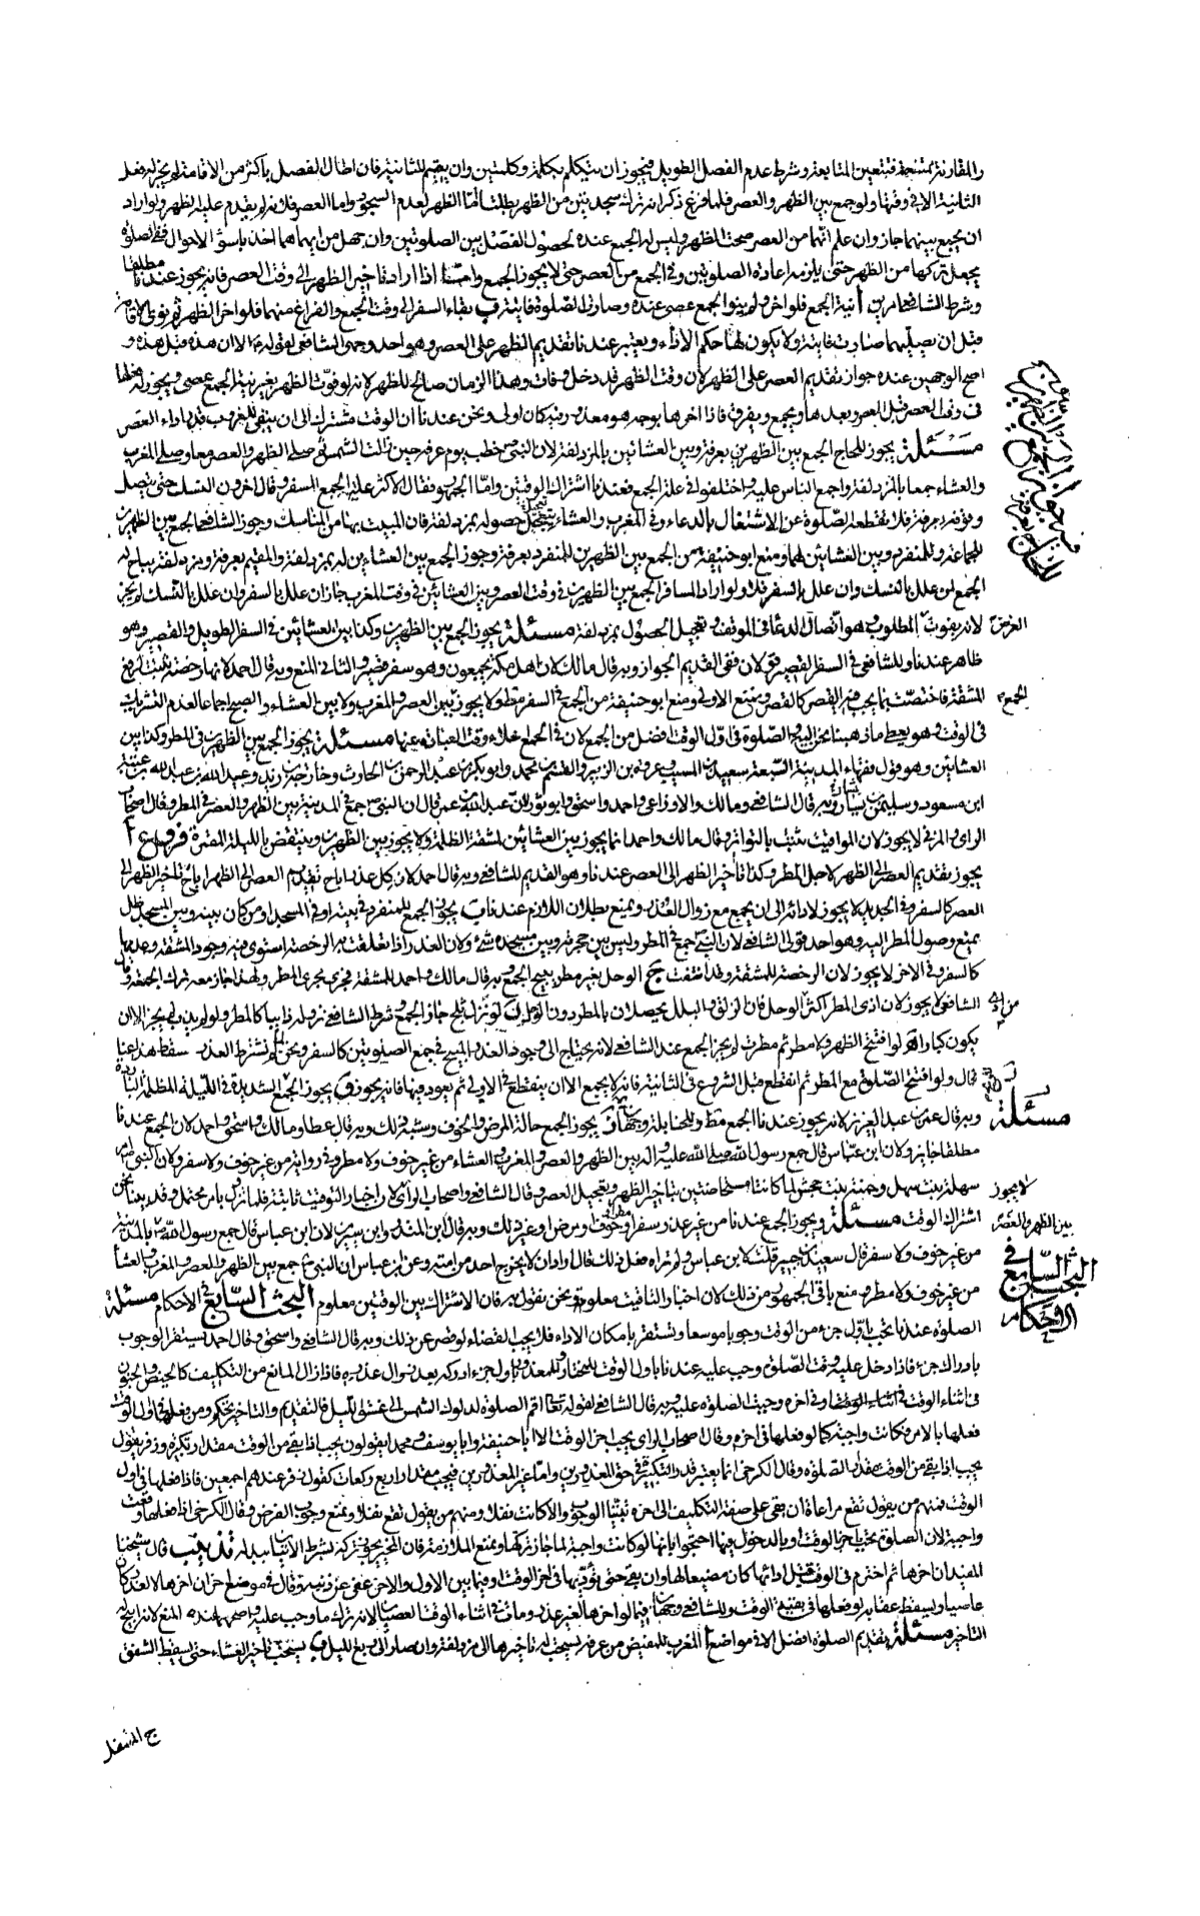 والمقارنة ممتنعة فيتعين المتابعة وشرط عدم الفصل الطويل فيجوز ان يتكلم بكلمة وكلمتين وان يقيم للثانية فان اطال الفصل باكثر من الاقامة لم يجز له فعل
الثانية الا في وقتها ولو جمع بين الظهر والعصر فلما فرغ ذكر انه ترك سجدة من الظهر بطلتا اما الظهر لعدم السجود واما العصر فلانه لم يقدم عليه الظهر ولو اراد
ان يجمع بينهما جاز وان علم انها من العصر صحت الظهر وليس له الجمع عنده لحصول الفصل بين الصلوتين وان جهل من ايهما هما اخذ باسوء الاحوال
يجعل تركها من الظهر حتى يلزمه اعادة الصلوتين وفي الجمع من العصر حتى لا يجوز الجمع واما اذا اراد تاخير الظهر الى وقت العصر فانه يجوز عندنا مطلقا
وشرط الشافعي امرين ا نية الجمع فلو اخر ولم ينو الجمع عصى عنده وصارت الصلوة فائتة ب بقاء السفر الى وقت الجمع والفراغ منهما فلو اخر الظهر ثم نوى الاقامة
قبل ان يصليهما صارت فائتة ولا يكون لها حكم الاداء ويعتبر عندنا تقديم الظهر على العصر وهو احد وجهي الشافعي لقوله ع الا ان هذه قبل هذه و
اصح الوجهين عنده جواز تقديم العصر على الظهر لان وقت الظهر قد دخل وفات وهذا الزمان صالح للظهر لانه لو فوت الظهر بغير نية الجمع عصى ويجوز له فعلها
في وقت العصر قبل العصر وبعدها ويجمع ويفرق فاذا اخرها بوجه هو معذور فيه كان اولى ونحن عندنا ان الوقت مشترك الى ان يبقى للغروب قدر اداء العصر
مسئلة يجوز للحاج الجمع بين الظهرين بعرفة وبين العشائين بالمزدلفة لان النبي ص خطب يوم عرفة حين زالت الشمس ثم صلى الظهر والعصر معا وصلى المغرب
والعشاء جمعا بالمزدلفة واجمع الناس عليه واختلفوا في علة الجمع فعندنا اشتراك الوقتين واما الجمهور فقال الاكثر علة الجمع السفر وقال اخرون النسك حتى يتصل
وقوفه بعرفة فلا يقطعه الصلوة عن الاشتغال بالدعاء وفي المغرب والعشاء يتعجل حصوله بمزدلفة فان المبيت بها من المناسك وجوز الشافعي الجمع بين الظهرين
للجماعة وللمنفرد وبين العشائين لهما ومنع ابو حنيفة من الجمع بين الظهرين للمنفرد بعرفة وجوز الجمع بين العشاءين له بمزدلفة والمقيم بعرفة ومزدلفة يباح له
الجمع ان علل بالنسك وان علل بالسفر فلا ولو اراد المسافر الجمع بين الظهرين في وقت العصر وبين العشائين في وقت المغرب جاز ان علل بالسفر وان علل بالنسك لم يجز
لانه يفوت الغرض المطلوب وهو اتصال الدعاء في الموقف وتعجيل الحصول بمزدلفة مسئلة يجوز الجمع بين الظهرين وكذا بين العشائين في السفر الطويل والقصير وهو
ظاهر عندنا وللشافعي في السفر القصير قولان ففي القديم الجواز وبه قال مالك لان اهل مكة يجمعون وهو سفر قصير والثاني المنع وبه قال احمد لانها رخصة تثبت لدفع
المشقة فاختصت بما يجب فيه القصر كالقصر ويمنع الاولى ومنع ابو حنيفة من الجمع في السفر مطلقا ولا يجوز بين العصر والمغرب ولا بين العشاء والصبح اجماعا لعدم التشريك
في الوقت وهو يعطي ما ذهبنا نحن اليه والصلوة في اول الوقت افضل من الجمع لان في الجمع اخلاء وقت العبادة عنها مسئلة يجوز الجمع بين الظهرين في المطر وكذا بين
العشائين وهو قول فقهاء المدينة السبعة سعيد بن المسيب وعروة بن الزبير والقاسم بن محمد وابو بكر بن عبد الرحمن بن الحارث وخارجة بن زيد وعبيد الله بن عبد الله بن عتبة
ابن مسعود وسليمن بن يسار وبه قال الشافعي ومالك والاوزاعي واحمد واسحق وابو ثور لان عبد الله بن عمر قال ان النبي ص جمع في المدينة بين الظهر والعصر في المطر وقال اصحاب
الراي والمزني لا يجوز لان المواقيت تثبت بالتواتر وقال مالك واحمد انما يجوز بين العشائين لمشقة الظلمة ولا يجوز بين الظهرين وينتقض بالليلة المقمرة فروع ا
يجوز تقديم العصر الى الظهر لاجل المطر وكذا تاخير الظهر الى العصر عندنا وهو القديم للشافعي وبه قال احمد لان كل عذر اباح تقديم العصر الى الظهر اباح تاخير الظهر الى
العصر كالسفر وفي الجديد لا يجوز لادائه الى ان يجمع مع زوال العذر ويمنع بطلان اللازم عندنا ب يجوز الجمع للمنفرد في بيته او في المسجد او من كان بينه وبين المسجد ظل
يمنع وصول المطر اليه وهو احد قولي الشافعي لان النبي ص جمع في المطر وليس بين حجرته وبين مسجده شئ ولان العذر اذا تعلقت به الرخصة استوى فيه وجود المشقة وعدمها
كالسفر وفي الاخر لا يجوز لان الرخصة للمشقة وقد انتفت ج الوحل بغير مطر يبيح الجمع وبه قال مالك واحمد للمشقة فجرى مجرى المطر ولهذا جاز معه ترك الجمعة وقال
الشافعي لا يجوز لان اذى المطر اكثر من اذى الوحل فان الزلق والبلل يحصلان بالمطر دون الوحل د لو نزل ثلج جاز الجمع وشرط الشافعي نزوله ذايبا كالمطر ولو لم يذب لم يجز الا ان
يكون كبارا ه لو افتتح الظهر ولا مطر ثم مطرت لم يجز الجمع عند الشافعي لانه يحتاج الى وجود العذر المبيح في جمع الصلوتين كالسفر ونحن لما لم نشترط العذر سقط هذا عنا
قال ولو افتتح الصلوة مع المطر ثم انقطع قبل الشروع في الثانية فانه لا يجمع الا ان ينقطع في الاولى ثم يعود فيها فانه يجوز و يجوز الجمع
وبه قال عمر بن عبد العزيز لانه يجوز عندنا الجمع مطلقا وللحنابلة وجهان ز يجوز الجمع حالة المرض والخوف وشبه ذلك وبه قال عطا ومالك واسحق واحمد لان الجمع عندنا
مطلقا جايز ولان ابن عباس قال جمع رسول الله صلى الله عليه واله بين الظهر والعصر والمغرب والعشاء من غير خوف ولا مطر وفي رواية من غير خوف ولا سفر ولان النبي ص امر
سهلة بنت سهيل وحمنة بنت جحش لما كانتا مستحاضتين بتاخير الظهر وتعجيل العصر وقال الشافعي واصحاب الراي لا يجوز لان اخبار التوقيت ثابتة فلا تترك بامر محتمل وقد بينا نحن
اشتراك الوقت مسئلة ويجوز الجمع عندنا من غير عذر سفر او خوف او مطر او مرض او غير ذلك وبه قال ابن المنذر وابن سيرين لان ابن عباس قال جمع رسول الله ص بالمدينة بين الظهر والعصر
من غير خوف ولا سفر قال سعيد بن جبير قلت لابن عباس ولم تراه فعل ذلك قال اراد ان لا يحرج احد من امته وعن ابن عباس ان النبي ص جمع بين الظهر والعصر والمغرب والعشا
من غير خوف ولا مطر ومنع باقي الجمهور من ذلك لان اخبار التاقيت معلومة ونحن نقول به فان الاشتراك بين الوقتين معلوم البحث السابع في الاحكام مسئلة
الصلوة عندنا تجب باول جزء من الوقت وجوبا موسعا وتستقر بامكان الاداء فلا يجب القضاء لو قصر عن ذلك وبه قال الشافعي واسحق وقال احمد يستقر الوجوب
بادراك جزء فاذا دخل عليه وقت الصلوة وجب عليه عندنا باول الوقت للمختار وللمعذور باول جزء ادركه بعد زوال عذره فاذا زال المانع من التكليف كالحيض والجنون
في اثناء الوقت او في اخره وجبت الصلوة عليه وبه قال الشافعي لقوله تعالى اقم الصلوة لدلوك الشمس الى غسق الليل فالتقديم والتاخير تحكم ومن فعلها في اول الوقت
فعلها بالامر فكانت واجبة كما لو فعلها في اخره وقال اصحاب الراي يجب اخر الوقت الا ان ابا حنيفة وابا يوسف ومحمدا يقولون يجب اذا بقي من الوقت مقدار تكبيرة وزفر يقول
يجب اذا بقي من الوقت مقدار الصلوة وقال الكرخي انما يعتبر قدر التكبيرة في حق المعذورين واما غير المعذورين فيجب بمقدار اربع ركعات كقول زفر عندهم اجمعين فاذا فعلها في اول
الوقت فمنهم من يقول تقع مراعاة ان بقي على صفة التكليف الى اخره تبينا الوجوب والا كانت نفلا ومنهم من يقول تقع نفلا وتمنع وجوب الفرض وقال الكرخي اذا فعلها وقعت
واجبة لان الصلوة تجب باخر الوقت او بالدخول فيها احتجوا بانها لو كانت واجبة لما جاز تركها ونمنع الملازمة فان المخير يجوز تركه بشرط الاتيان ببدله تذنيب قال شيخنا
المفيد ان اخرها ثم اخترم في الوقت قبل ادائها كان مضيعا لها وان بقي حتى يؤديها في اخر الوقت او فيما بين الاول والاخر عفي عن ذنبه وقال في موضع اخر ان اخرها لا لعذر كان
عاصيا ويسقط عقابه لو فعلها في بقية الوقت وللشافعي وجهان فيما لو اخرها لغير عذر ومات في اثناء الوقت العصيان لانه ترك ما وجب عليه واصحهما عنده المنع لانه ابيح له
التاخير مسئلة تقديم الصلوة افضل الا في مواضع ا المغرب للمفيض من عرفة يستحب له تاخيرها الى مزدلفة وان صار الى ربع الليل ب يستحب تاخير العشاء حتى يسقط الشفق
الغرض
الجمع
من اذى
مسئلة
لا يجوز
بين الظهر والعصر
البحث السابع في
الاحكام